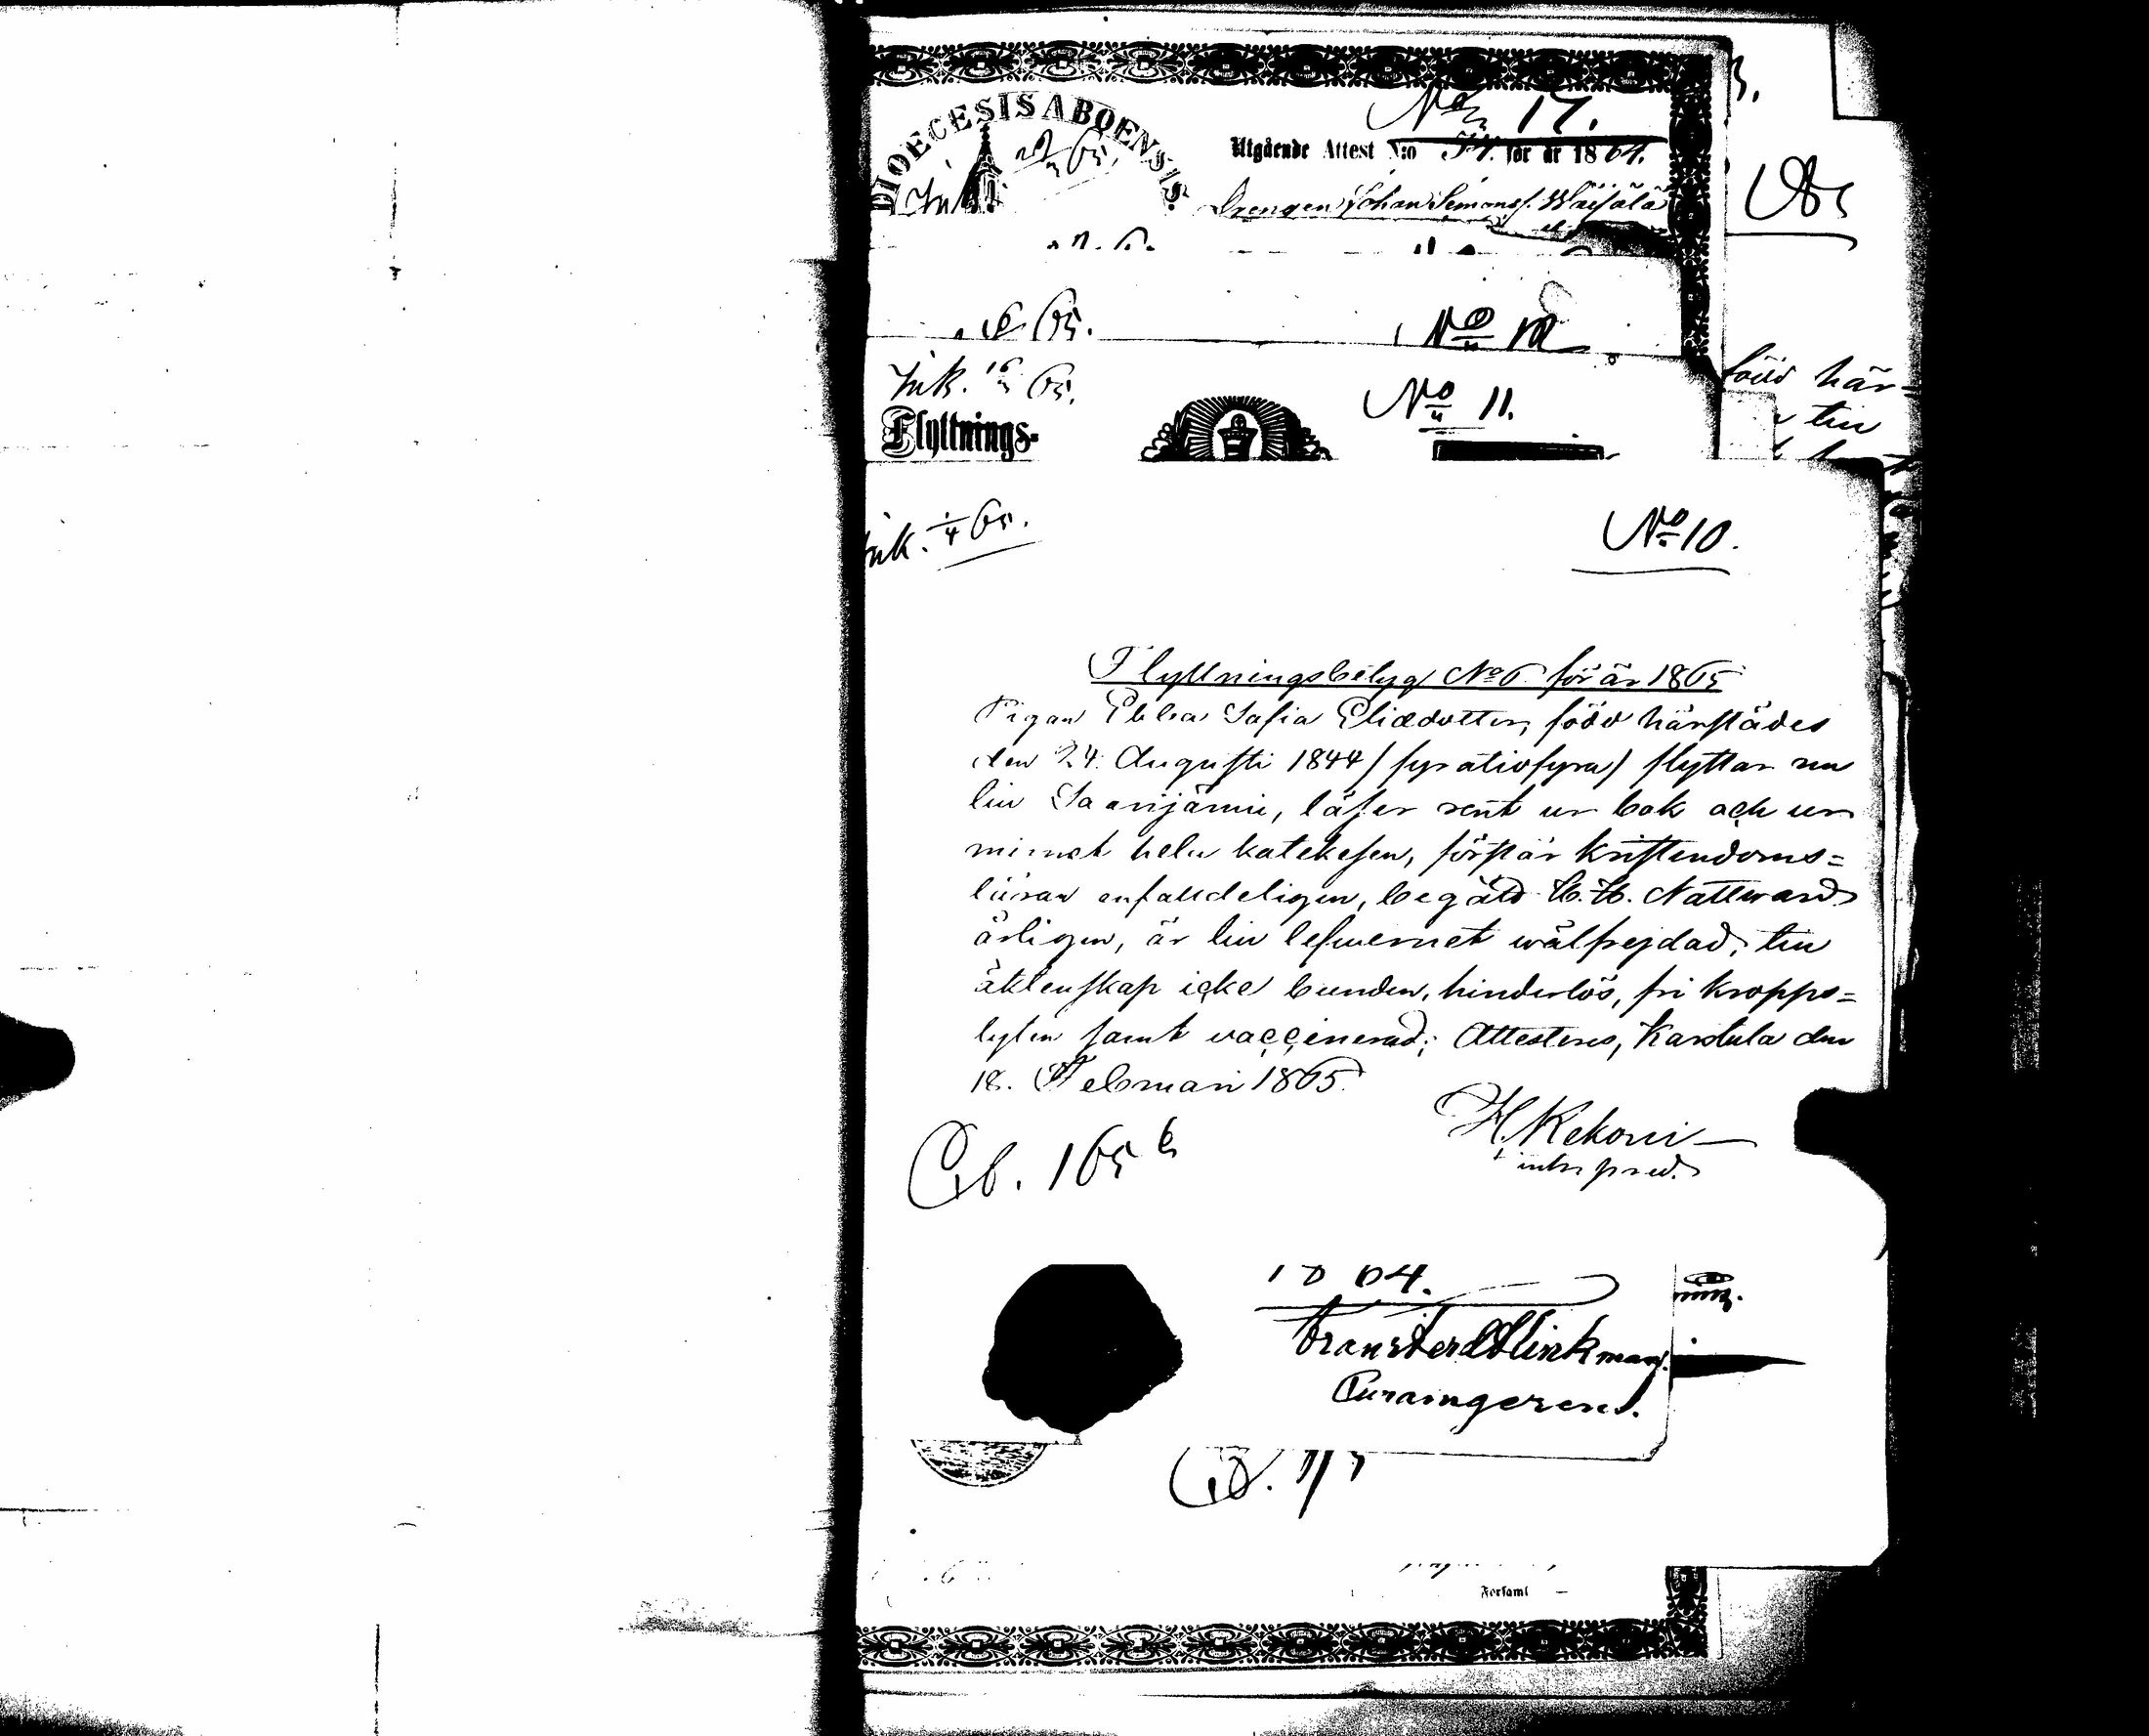 DIOECESIS ABOENSIS.
No 17.
Utgående Attest N:o 54. för år 1864.
Ink 29/3 65.
Drengen Johan Simonss. Wäisälä
65.
No 12
Ink. 16/3 65.
No 11.
Flyttnings-
född här-
till
Ink. 1/4 65.
No 10.
Flyttningsbetyg No 6 för år 1865
Pigan Ebba Safia Eliædotter, född härstädes
den 24. Augusti 1844 (fyratiofyra) flyttar nu
till Saarijärvi, läser rent ur bok och ur
minnet hela katekesen, förstår kristendoms=
läran enfaldeligen, begått H. H. Nattvard
årligen, är till lefvernet wälfrejdad, till
äktenskap icke bunden, hinderlös, fri kropps=
lyten samt vaccinerad; Attesteras, Karstula den
18. Februari 1865.
H. Rekoni
Cb. 165 b
1864.
Frans Ferd Klinkman.
Curamgerens.
Församl